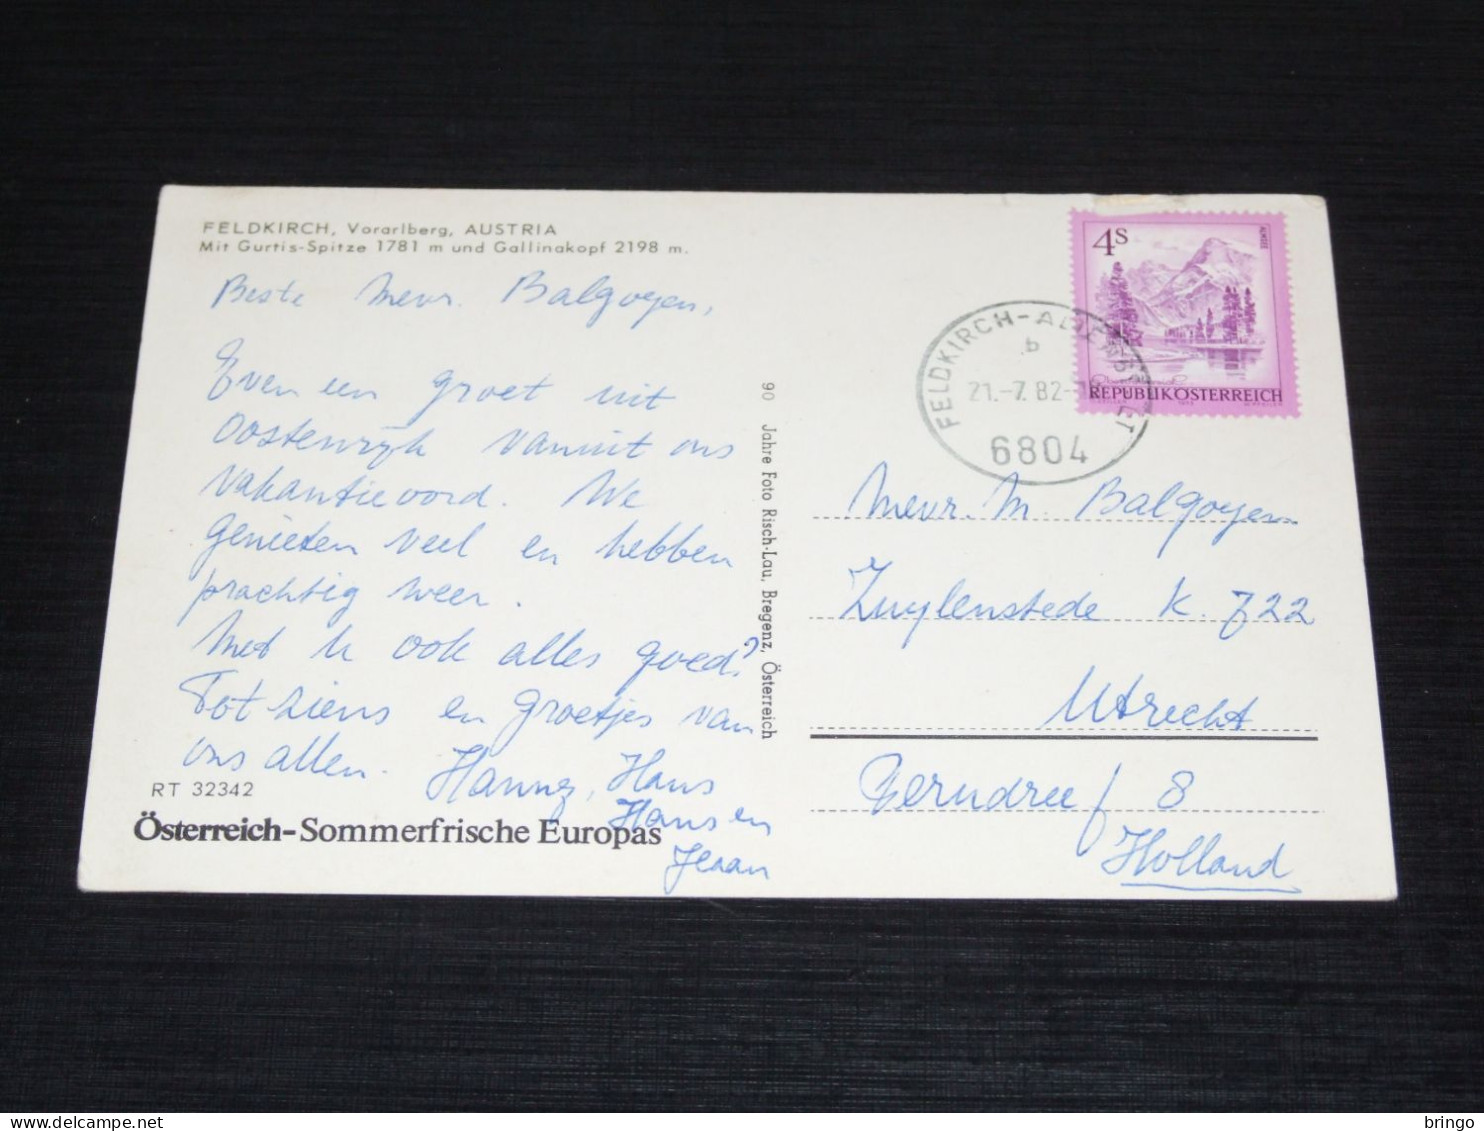 FELDKIRCH, Vorarlberg, AUSTRIA
Mit Gurtis-Spitze 1781 m und Gallinakopf 2198 m.
Beste Mevr. Balgoyen,
Even een groet uit
Oostenrijk vanuit ons
vakantieoord. We
genieten veel en hebben
prachtig weer.
Met u ook alles goed?
Tot ziens en groetjes van
ons allen. Hanny, Hans
Hans en
RT 32342
Österreich-Sommerfrische Europas
90 Jahre Foto Risch-Lau, Bregenz, Österreich
4S
ALMSEE
REPUBLIK ÖSTERREICH
FELDKIRCH-
b
21.-7.82-
6804
Mevr. M. Balgoyen
Zuylenstede K. 722
Utrecht
8
Holland
bringo